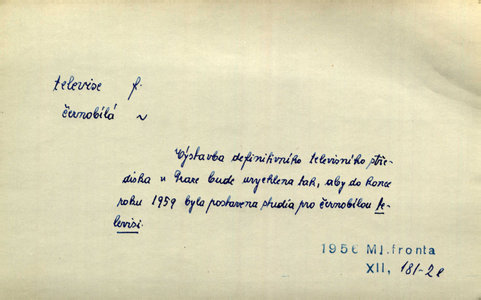 televise f.
černobílá ~
Výstavba definitivního televisního stře-
diska v Praze bude urychlena tak, aby do konce
roku 1959 byla postavena studia pro černobílou te-
levisi.
1956 Ml.fronta
XII, 181-2e